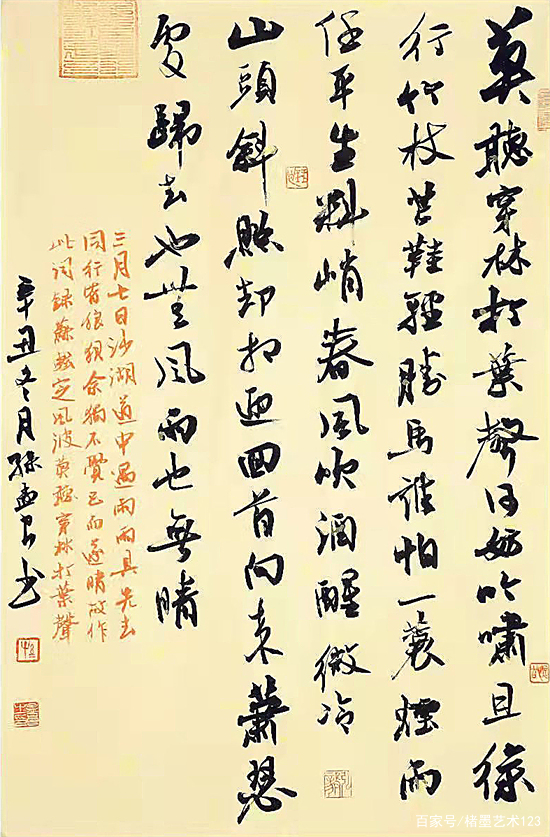 莫聽穿林打葉聲何妨吟嘯且徐
行竹杖芒鞋輕勝馬誰怕一蓑煙雨
任平生料峭春風吹酒醒微冷
山頭斜照却相迎回首向来蕭瑟
處歸去也無風雨也無晴
三月七日沙湖道中遇雨雨具先去
同行皆狼狽余獨不覺已而遂晴故作
此词録蘇軾定風波莫聽穿林打葉聲
辛丑冬月孫孟书
百家号/楮墨艺术123